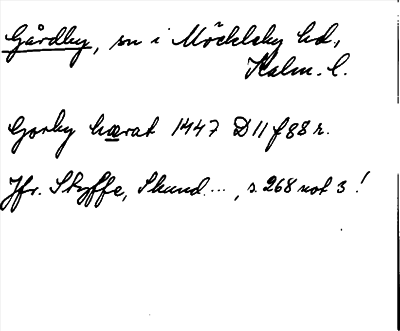 Gårdby, sn i Möckleby hd,
Kalm. l.
Gorby hærat 1447 D 11 f 88 r.
Jfr. Styffe, Skand..., s. 268 not 3!